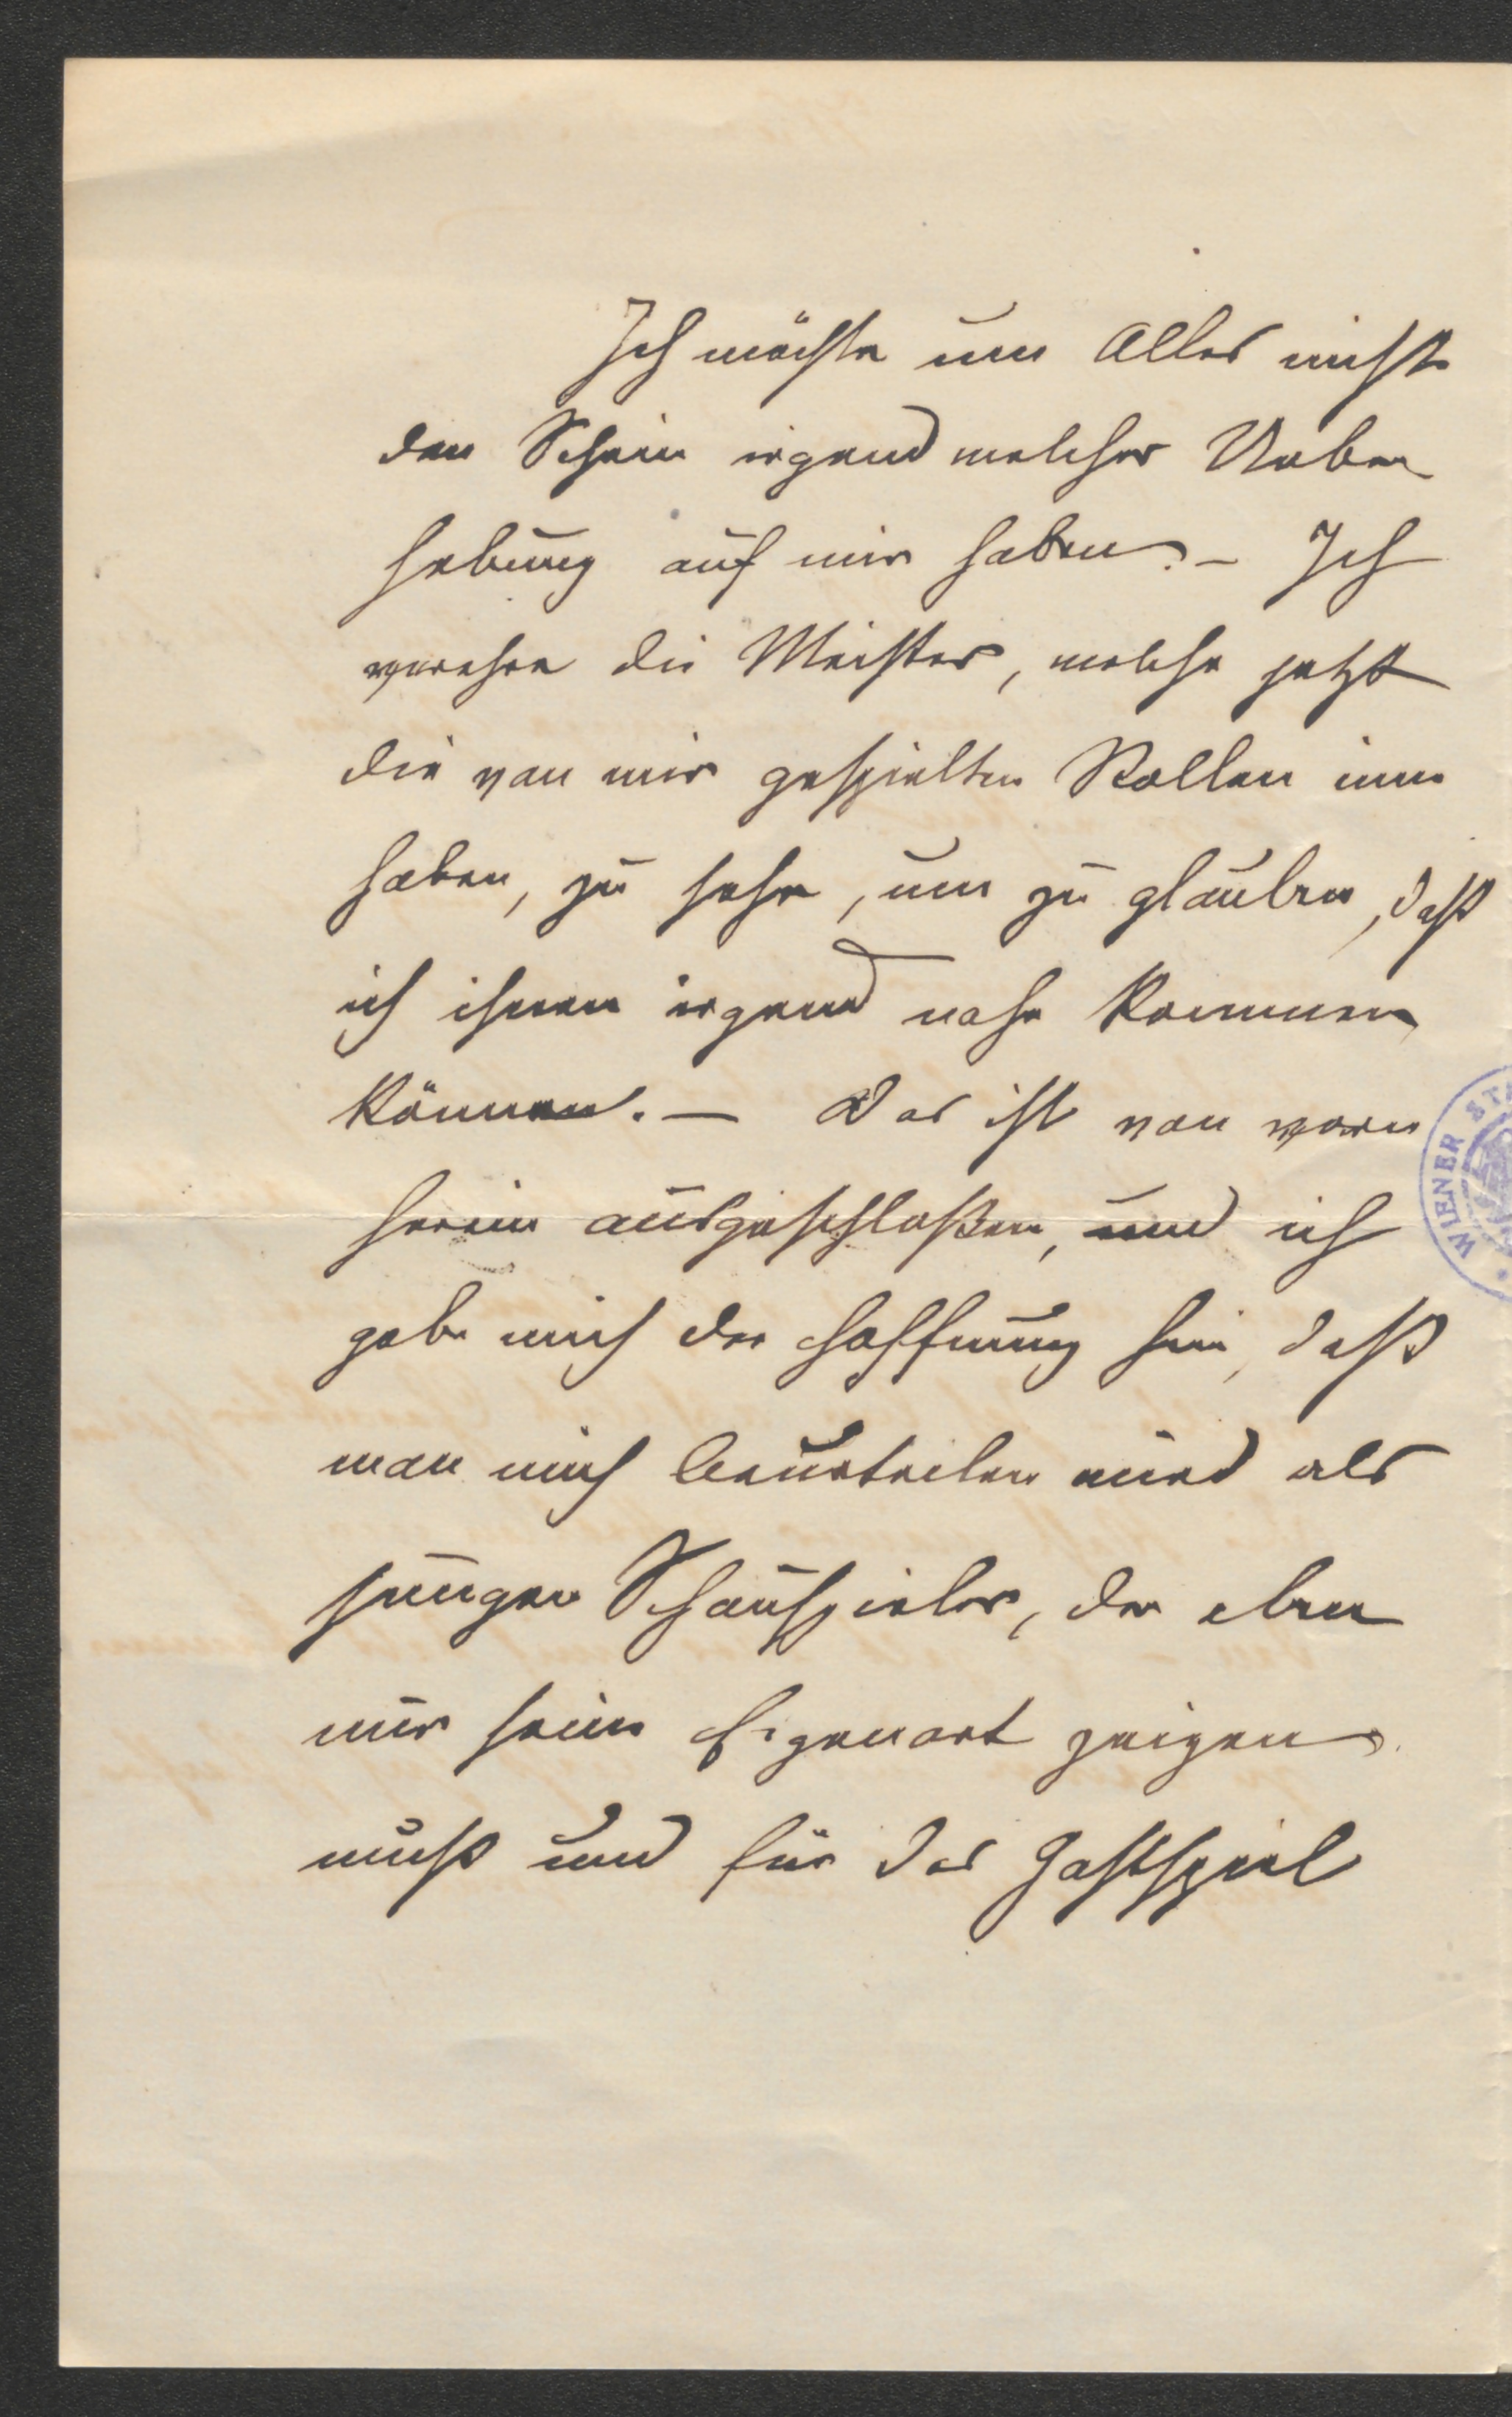 Ich möchte um Alles nicht
den Schein irgend welcher Ueber
hebung auf mir haben. – Ich
verehre die Meister, welche jetzt
die von mir gespielten Rollen inne
haben, zu sehr, um zu glauben, daß
ich ihnen irgend nahe kommen
können. – Das ist von vorn
herein ausgeschloßen, und ich
gebe mich der Hoffnung hin, daß
man mich beurteilen wird als
jungen Schauspieler, der eben
nur seine Eigenart zeigen
muß und für das Gastspiel
WIENER ST